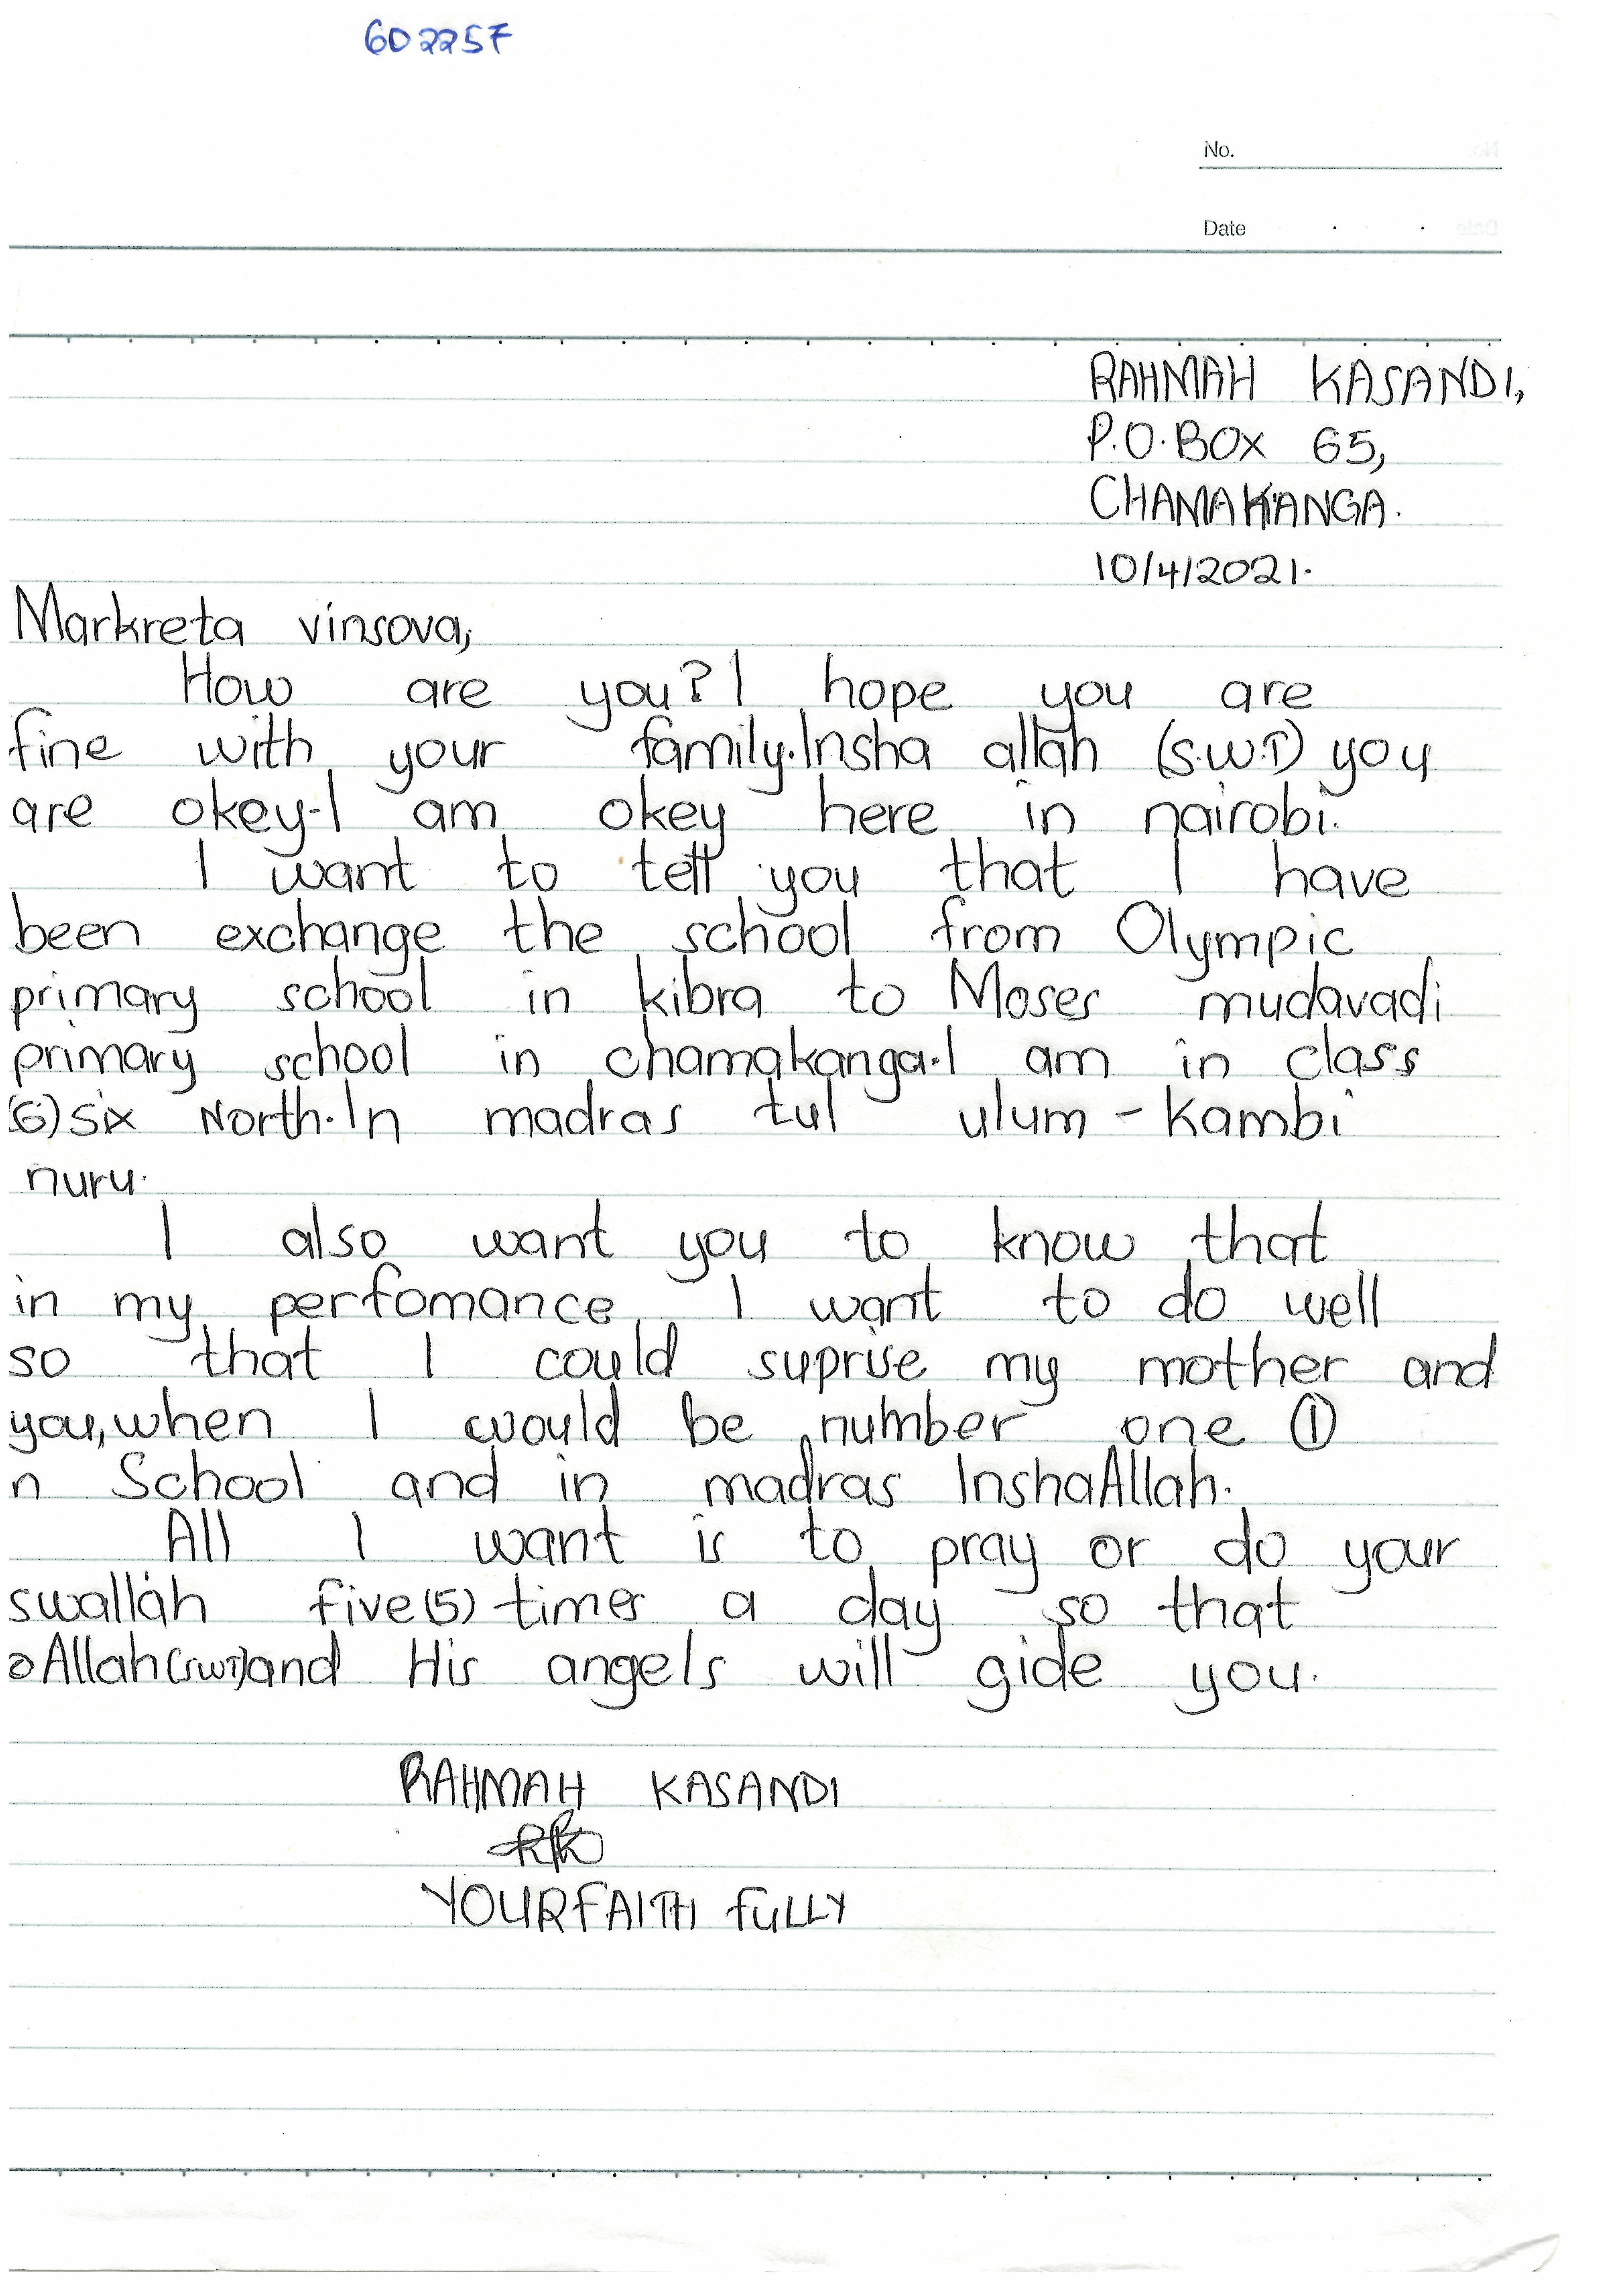 602257
No.
Date
RAHMAH KASANDI,
P.O.BOX 65,
CHAMAKANGA.
10/4/2021.
Markreta vinsova,
How are you? I hope you are
fine with your family. Insha allah (S.W.T) you
are okey. I am okey here in nairobi.
I want to tell you that I have
been exchange the school from Olympic
primary school in kibra to Moses mudavadi
primary school in chamakanga. I am in class
(6) six North. In madras tul ulum - Kambi
nuru.
I also want you to know that
in my perfomance I want to do well
so that I could suprise my mother and
you, when I would be number one ①
n School and in madras InshaAllah.
All I want is to pray or do your
swallah five (5) times a day so that
Allah (swt) and His angels will gide you.
RAHMAH KASANDI
RK
YOUR FAITH FULLY